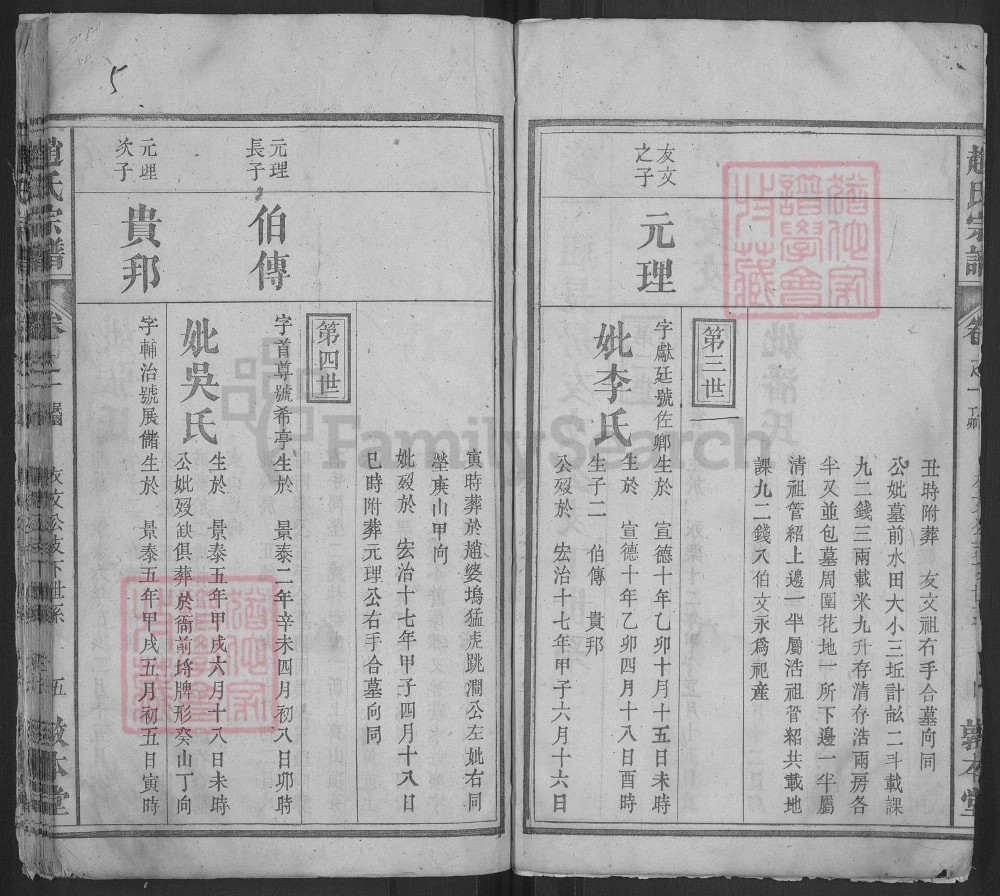 丑時附葬　友文祖右手合墓向同
公妣墓前水田大小三坵計訟二斗載課
九二錢三兩載米九升存清存浩兩房各
半又並包墓周圍花地一所下邊一半屬
清祖管紹上邊一半屬浩祖管紹共載地
課九二錢入伯文永為祀産
第三世
友文之子
元理
字獻廷號佐鄉生於　宣德十年乙卯十月十五日未時
妣李氏
生於　宣德十年乙卯四月十八日酉時
生子二　伯傳　貴邦
公歿於　宏治十七年甲子六月十六日
寅時葬於趙婆塢猛虎跳澗公左妣右同
塋庚山甲向
妣歿於　宏治十七年甲子四月十八日
巳時附葬元理公右手合墓向同
第四世
元理長子
伯傳
字首尊號希亭生於　景泰二年辛未四月初八日卯時
妣吳氏
生於　景泰五年甲戌六月十八日未時
公妣歿缺俱葬於衙前塝牌形癸山丁向
元理次子
貴邦
字輔治號展儲生於　景泰五年甲戌五月初五日寅時
趙氏宗譜
卷之一
五
敦本堂
5
FamilySearch